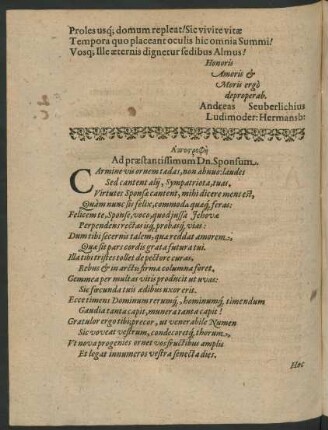 Proles usq; domum repleat! Sic vivite vitæ
Tempora quo placeant oculis hic omnia Summi!
Vosq; Ille æternis dignetur sedibus Almus!
Honoris
Amoris &
Moris ergò
deproperab.
Andreas Seuberlichius
Ludimoder: Hermansb:
Ad præstantissimum Dn. Sponsum.
CArmine vis ornem tædas, non abnuo: laudet
Sed cantent alij, Sympatriota, tuas,
Virtutes Sponsæ cantent, mihi dicere mens est,
Quàm nunc sis felix, commoda quæq, feras:
Felicem te, Sponse, voco, quod jussa Jehovæ
Perpendens rectas usq, probasq, vias:
Dum tibi secernis talem, quæ reddat amorem,
Quæ sit pars cordis grata futura tui.
Illa tibi tristes tollet de pectore curas,
Rebus & in arctis firma columna foret,
Gemmea per multas vitis producit ut uvas:
Sic fœcunda tuis ædibus uxor erit.
Ecce timens Dominum rerumq, hominumq, timendum
Gaudia tanta capit, munera tanta capit!
Gratulor ergo tibi, precor, ut venerabile Numen
Sic voveat vestrum, condecoretq, thorum,
Vt nova progenies ornet vos fructibus amplis
Et legat innumeros vestra senecta dies.
Hoc